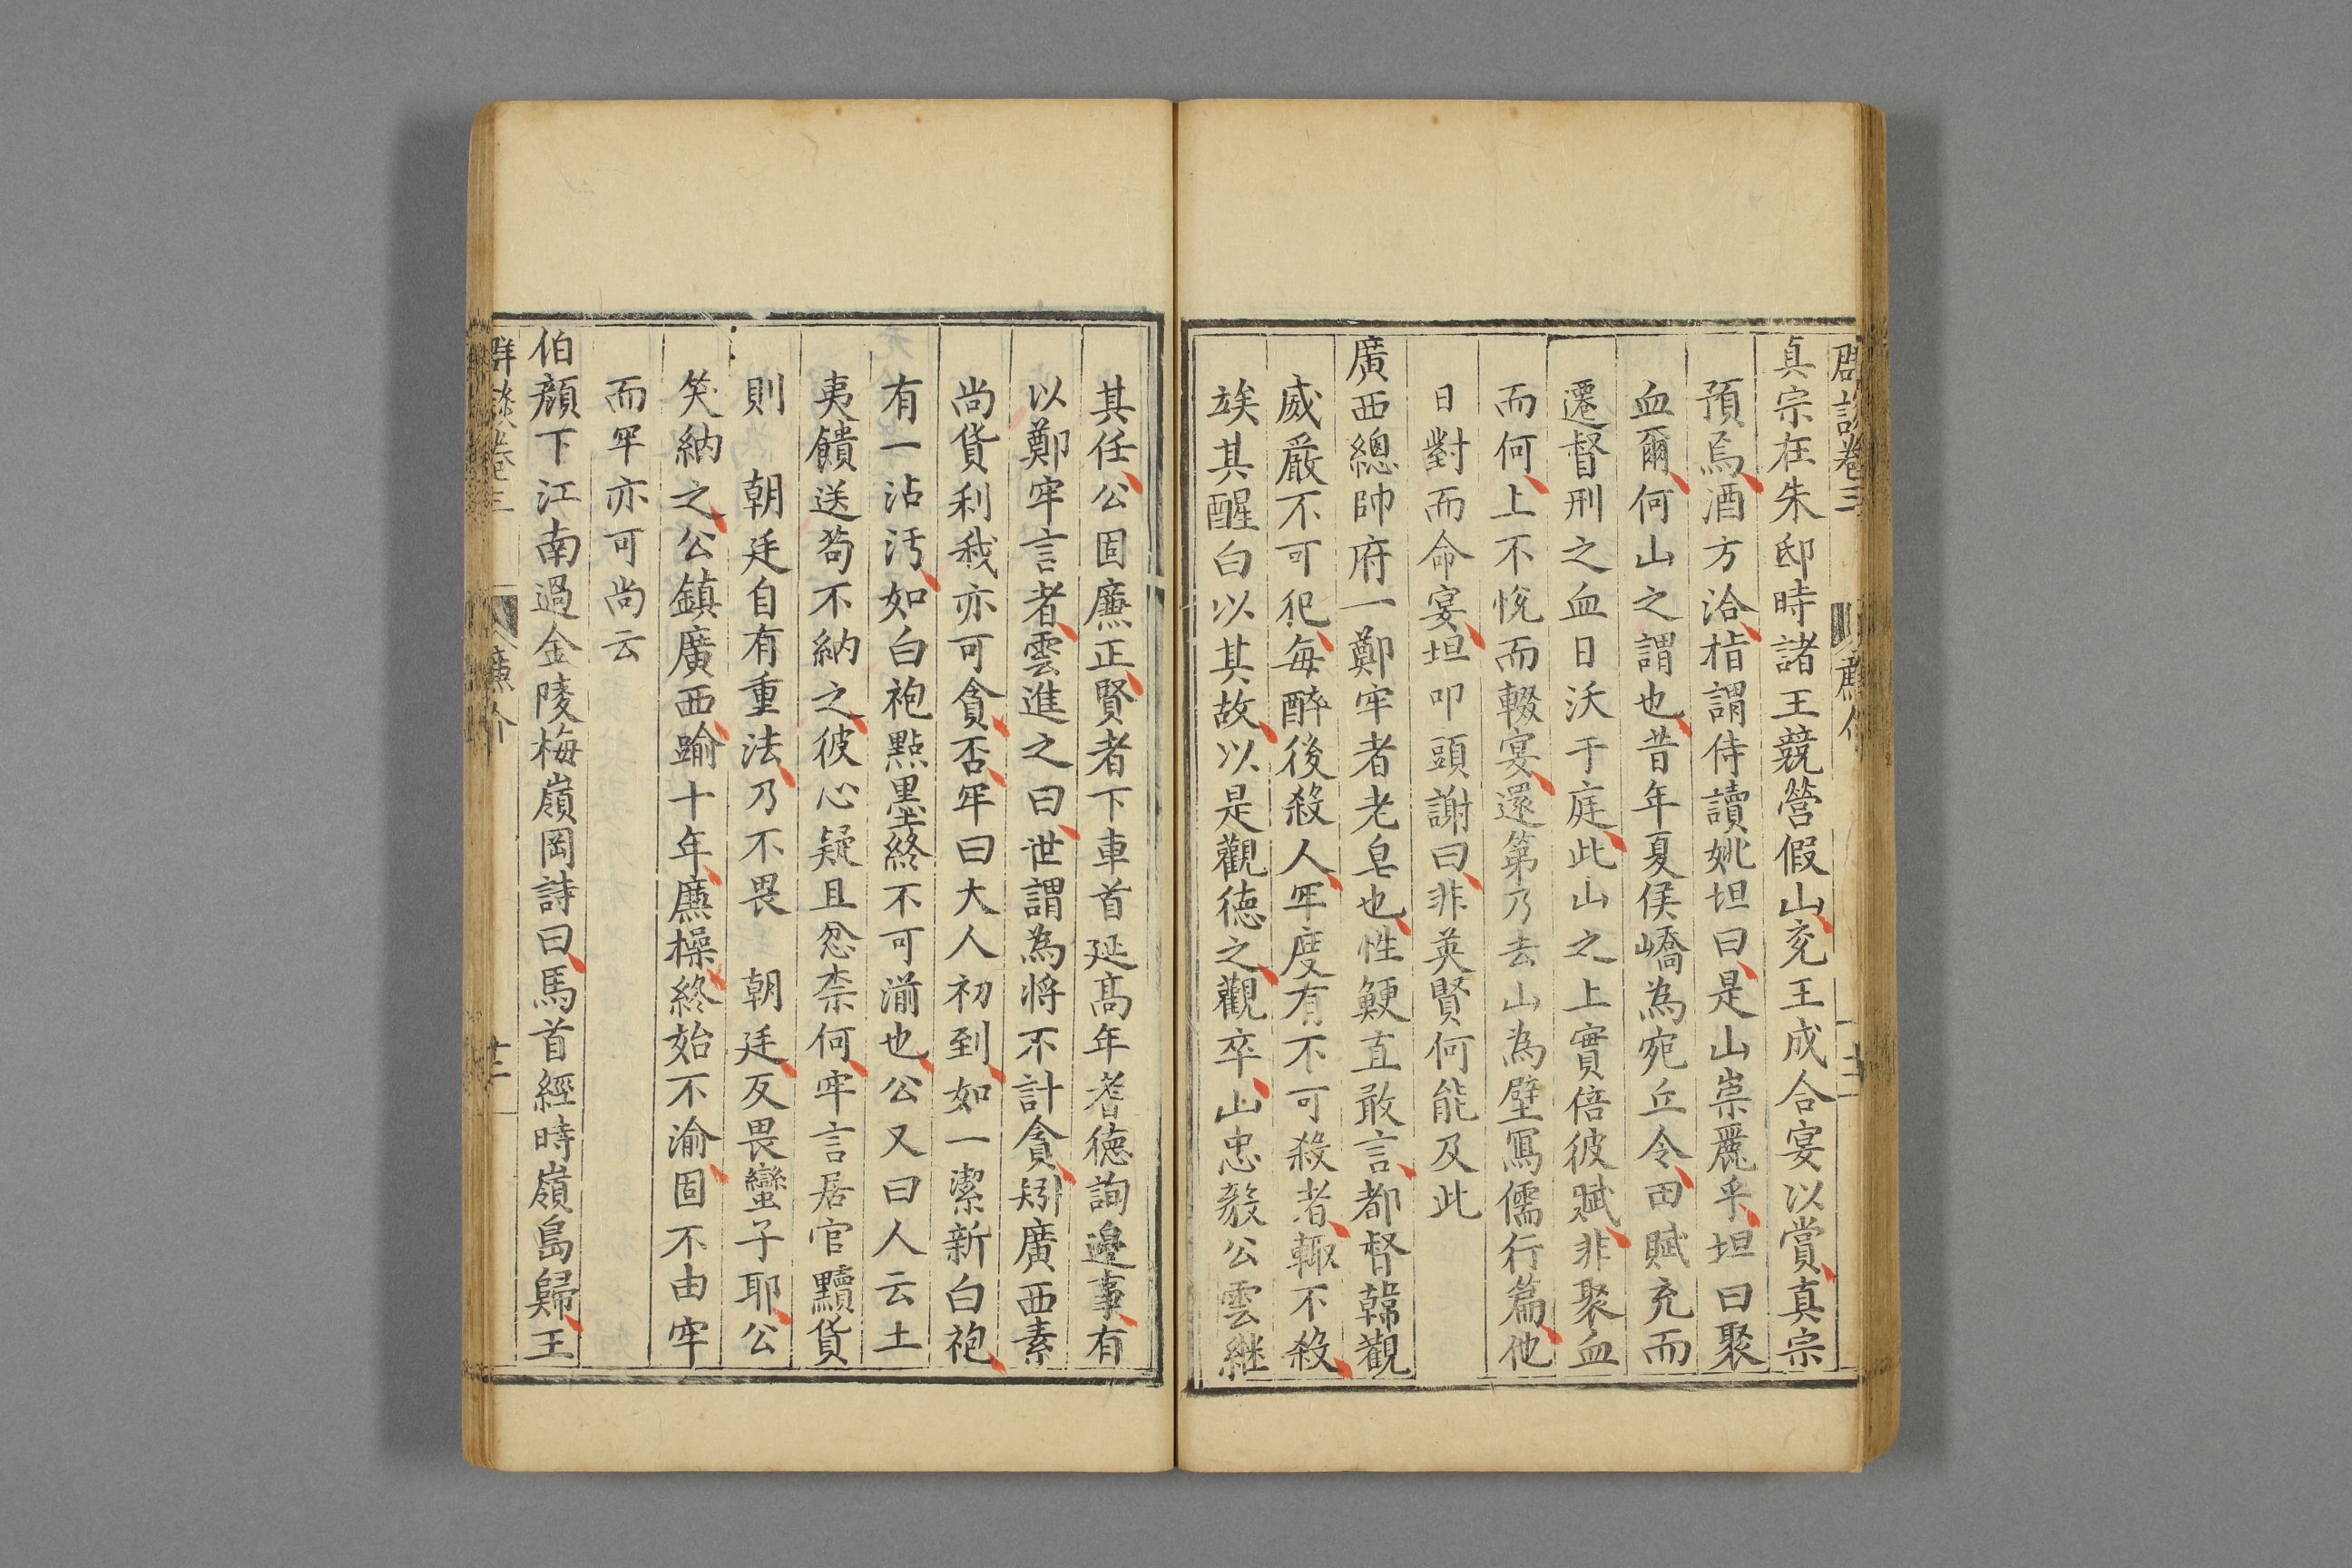 真宗在朱邸時諸王競營假山兖王成合宴以賞真宗
預焉酒方洽指謂侍讀姚坦曰是山崇麗乎坦曰聚
血爾何山之謂也昔年夏侯嶠為宛丘令田賦充而
遷督刑之血日沃于庭此山之上實倍彼賦非聚血
而何上不悅而輟宴還第乃去山為壁寫儒行篇他
日對而命宴坦叩頭謝曰非英賢何能及此
廣西總帥府一鄭牢者老皂也性鯁直敢言都督韓觀
威嚴不可犯每醉後殺人牢度有不可殺者輙不殺
竢其醒白以其故以是觀德之觀卒山忠毅公雲継
其任公固廉正賢者下車首延髙年耆德詢邉事有
以鄭牢言者雲進之曰世謂為將不計貪矧廣西素
尚貨利我亦可貪否牢曰大人初到如一潔新白袍
有一沾污如白袍點墨終不可湔也公又曰人云土
夷饋送茍不納之彼心疑且忿柰何牢言居官黷貨
則　朝廷自有重法乃不畏　朝廷反畏蠻子耶公
笑納之公鎮廣西踰十年廉操終始不渝固不由牢
而牢亦可尚云
伯顔下江南過金陵梅嶺岡詩曰馬首經時嶺島歸王
群談卷三